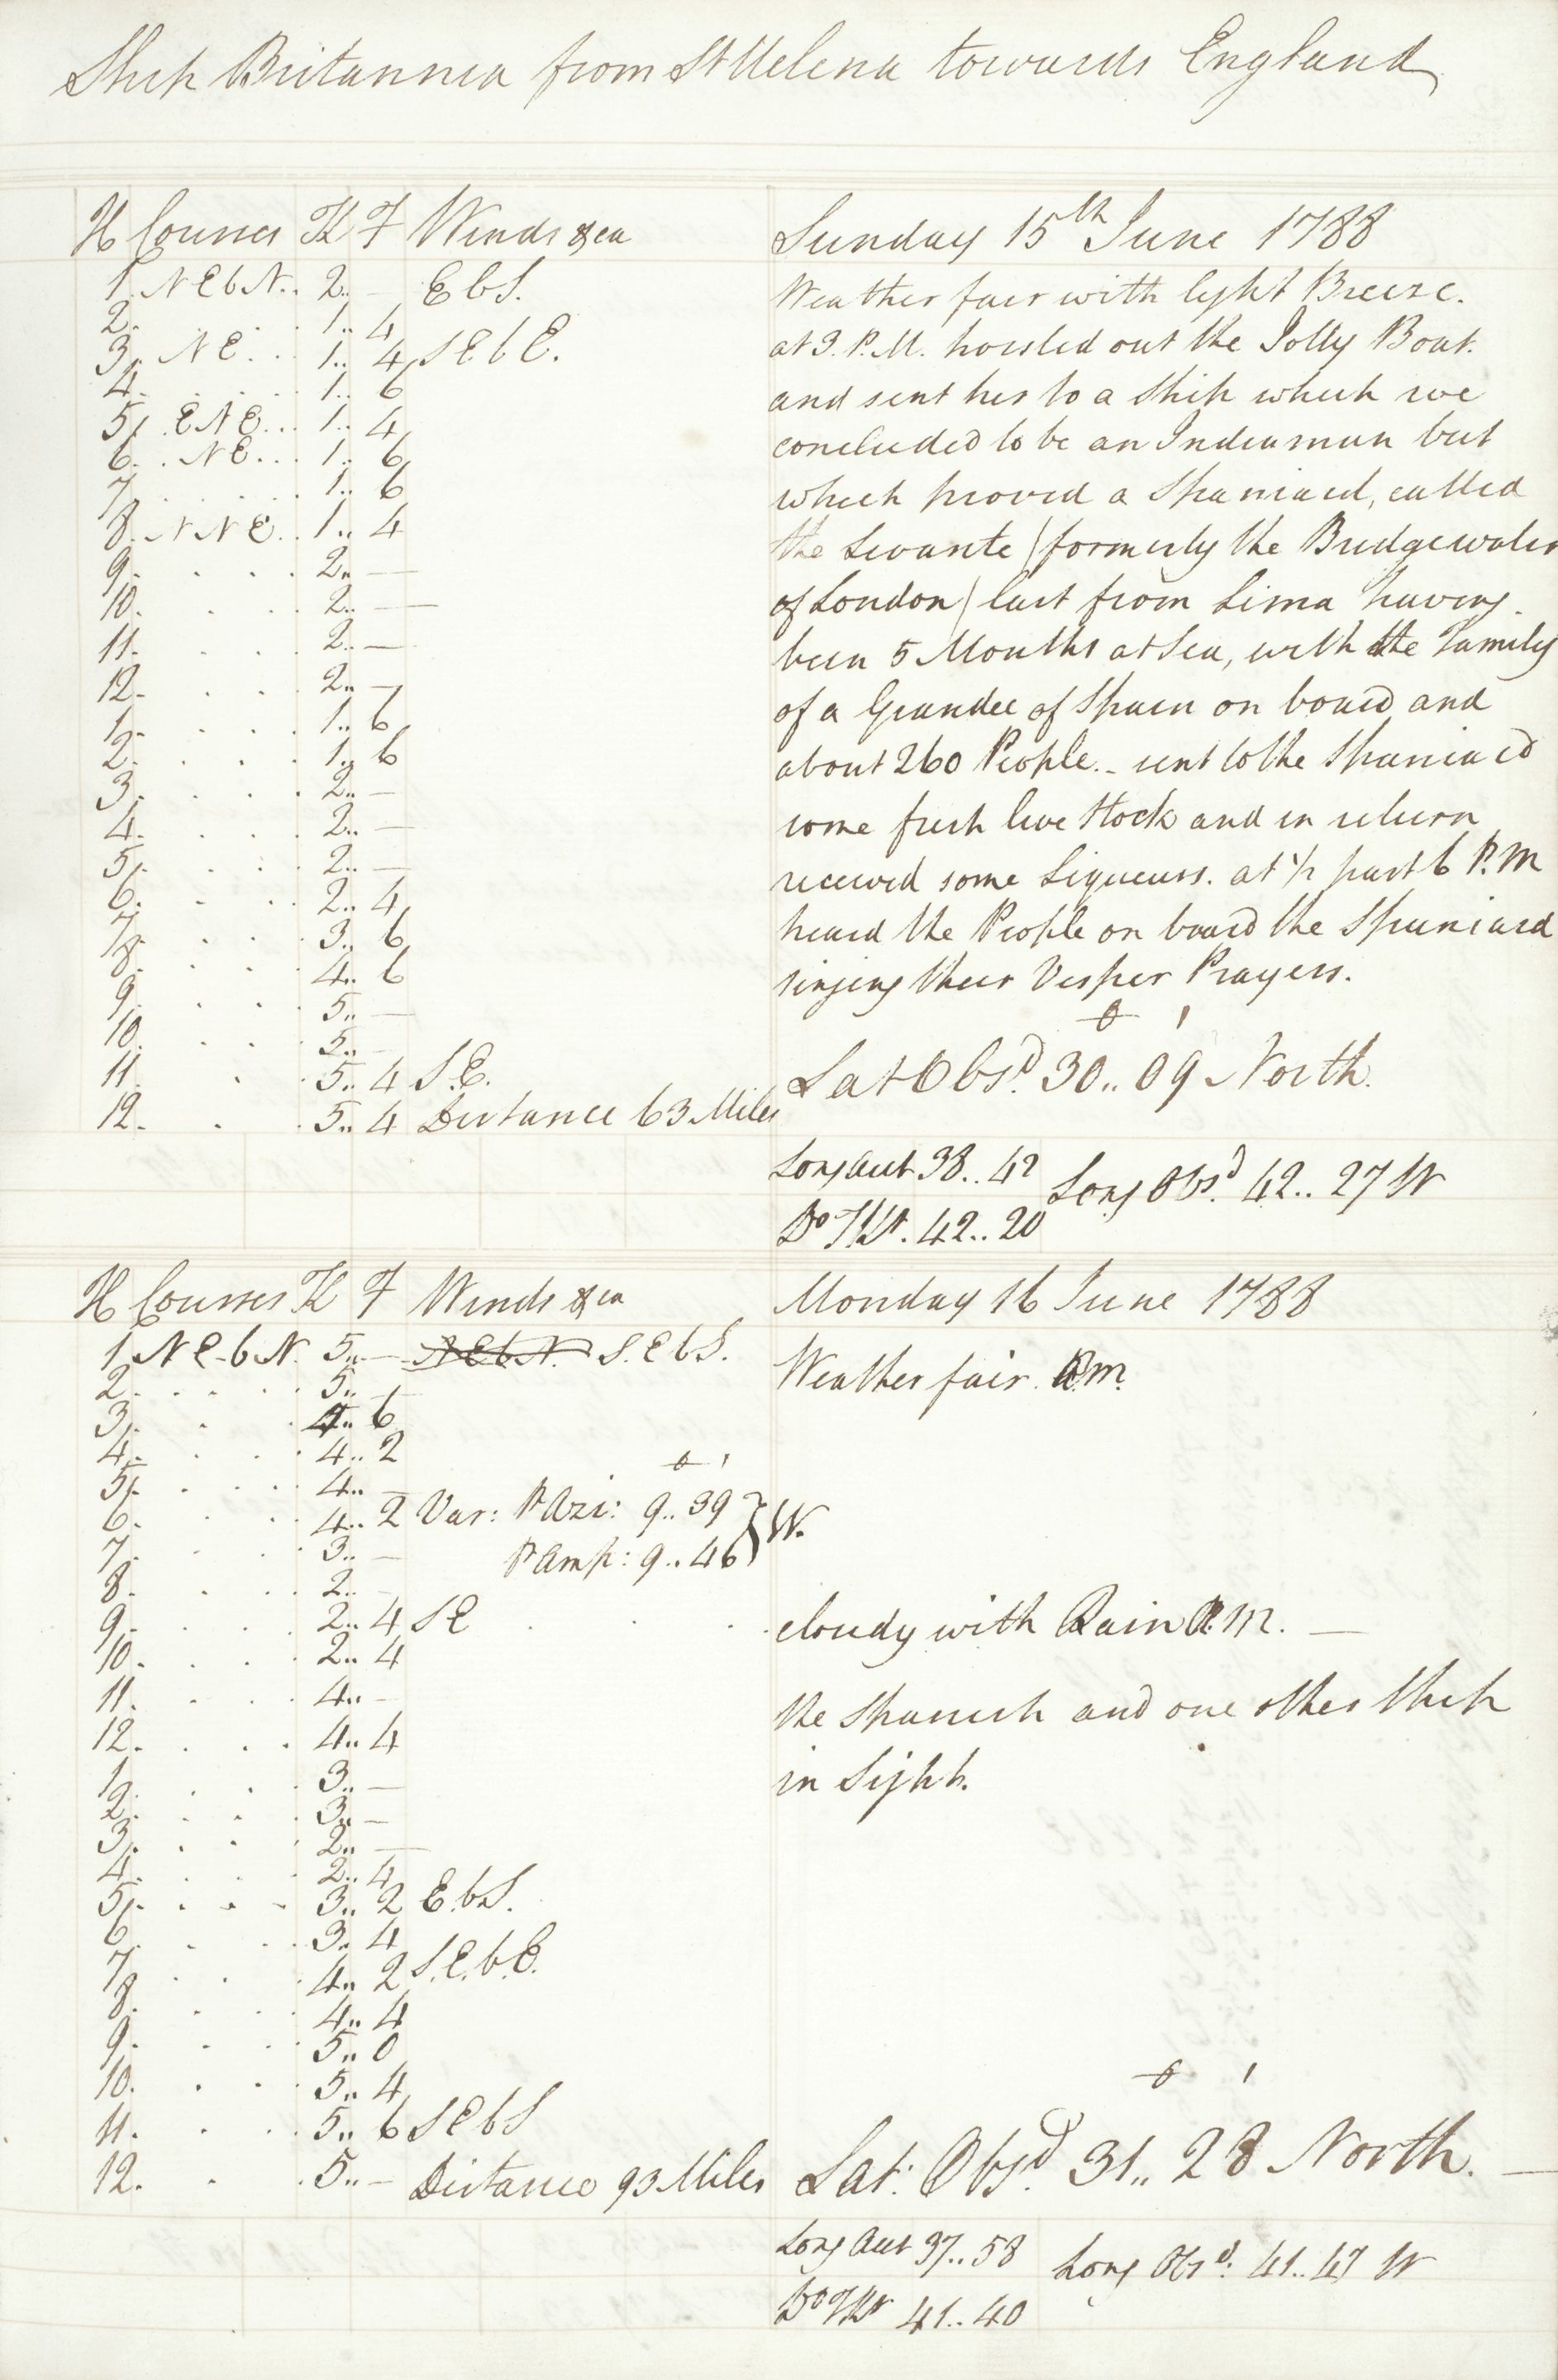 Ship Britannia from St Helena towards England
H Courses K F Winds &ca Sunday 15th June 1788
1. NEbN.. 2.. — EbS. Weather fair with light Breeze.
2. . . 1.. 4
3. NE. . . 1.. 4 SEbE. at 3. P.M. hoisted out the Jolly Boat.
4. . . . 1.. 6 and sent her to a Ship which we
5. ENE... 1.. 4 concluded to be an Indiaman but
6. . NE... 1.. 6
7. . . . . 1.. 6 which proved a Spaniard, called
8. NNE. . 1.. 4 the Levante (formerly the Bridgewater
9. . . . 2.. —
10. . . 2.. — of London) last from Lima having
11. . . 2.. — been 5 Months at Sea, with the Family
12. . . 2.. —
1. . . . 1.. 6 of a Grandee of Spain on board and
2. . . . 1.. 6 about 260 People. - sent to the Spaniard
3. . . . 2.. —
4. . . . 2.. — some fresh live Stock and in return
5. . . . 2.. — received some Liqueurs. at 1/2 past 6 P.M
6. . . . 2.. 4
7. . . . 3.. 6 heard the People on board the Spaniard
8. . . . 4.. 6 singing their Vesper Prayers.
9. . . 5.. —
10. . . 5.. —
11. . . 5.. 4 S.E. Lat Obsd. 30.. 09 North.
12. . . 5.. 4 Distance 63 Miles
Long acct 38.. 42 Long Obsd. 42.. 27 W
Do T.K. 42.. 20
H Courses K F Winds &ca Monday 16 June 1788
1. NE.bN. 5.. — NEbN. S.EbS. Weather fair. P.m.
2. . . . . 5.. —
3. . . 4.. 6
4. . . . 4.. 2
5. . . . 4.. —
6. . . 4.. 2 Var: P Azi: 9.. 39 } W.
7. . . 3.. — P Amp: 9.. 46
8. . . . 2.. —
9. . . . 2.. 4 SE . . cloudy with Rain A.M. —
10. . . . 2.. 4
11. . . . 4.. - the Spanish and one other Ship
12. . . . 4.. 4
1. . . . 3.. — in Sight.
2. . . . 3.. —
3. . . 2.. —
4. . . 2.. 4
5. . . . 3.. 2 E.bS.
6. . . 3.. 4
7. . . 4.. 2 S.E.b.E.
8. . . 4.. 4
9. . . 5.. 0
10. . . 5.. 4
11. . . 5.. 6 SEbS
12. . . 5.. - Distance 93 Miles Lat: Obsd. 31.. 28 North. —
Long Acct 37.. 58 Long Obsd: 41.. 47 W
Do T.K. 41.. 40